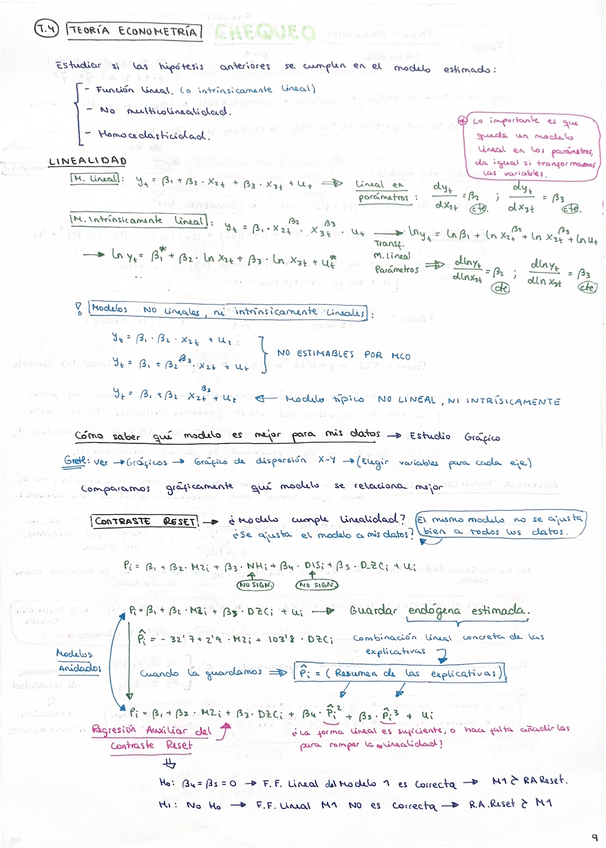 T.4 TEORÍA ECONOMETRÍA CHEQUEO
Estudiar si las hipótesis anteriores se cumplen en el modelo estimado:
- Función lineal. (o intrínsicamente lineal)
- No multicolinealidad.
- Homocedasticidad.
* Lo importante es que
quede un modelo
lineal en los parámetros,
da igual si tranformamos
las variables.
LINEALIDAD
M. Lineal: yt = β1 + β2 · X2t + β3 · X3t + ut ⟹ Lineal en parámetros: dyt/dX2t = β2 (cte.) ; dyt/dX3t = β3 (cte.)
M. Intrínsicamente lineal: yt = β1 · X2t^β2 · X3t^β3 · ut → Transf. M. lineal Parámetros lnyt = lnβ1 + ln X2t^β2 + ln X3t^β3 + lnut
→ ln yt = β1* + β2 · ln X2t + β3 · ln X3t + ut* ⟹ dlnyt/dlnX2t = β2 (cte) ; dlnyt/dlnX3t = β3 (cte)
! Modelos NO lineales, ni intrínsicamente lineales:
yt = β1 · β2 · X2t + ut
yt = β1 + β2^β3 · X2t + ut } NO ESTIMABLES POR MCO
yt = β1 + β2 · X2t^β3 + ut ← Modelo típico NO LINEAL, NI INTRÍSICAMENTE
Cómo saber qué modelo es mejor para mis datos → Estudio Gráfico
Gretl: Ver → Gráficos → Gráfico de dispersión X-Y → (Elegir variables para cada eje)
Comparamos gráficamente qué modelo se relaciona mejor
CONTRASTE RESET → ¿Modelo cumple linealidad?
¿Se ajusta el modelo a mis datos?
El mismo modelo no se ajusta
bien a todos los datos.
Pi = β1 + β2 · M2i + β3 · NHi + β4 · DISi + β5 · DZCi + ui
NO SIGN. NO SIGN.
Pi = β1 + β2 · M2i + β3 · DZCi + ui → Guardar endógena estimada.
P̂i = -32'7 + 2'9 · M2i + 103'8 · DZCi combinación lineal concreta de las
explicativas
Modelos
Anidados
Cuando la guardamos ⟹ P̂i = (Resumen de las explicativas)
Pi = β1 + β2 · M2i + β3 · DZCi + β4 · P̂i² + β5 · P̂i³ + ui
Regresión Auxiliar del
Contraste Reset
¿La forma lineal es suficiente, o hace falta añadirlas
para romper la linealidad?
H0: β4 = β5 = 0 → F.F. Lineal del Modelo 1 es correcta → M1 ≥ RA Reset.
H1: No H0 → F.F. Lineal M1 NO es correcta → R.A. Reset ≥ M1
9